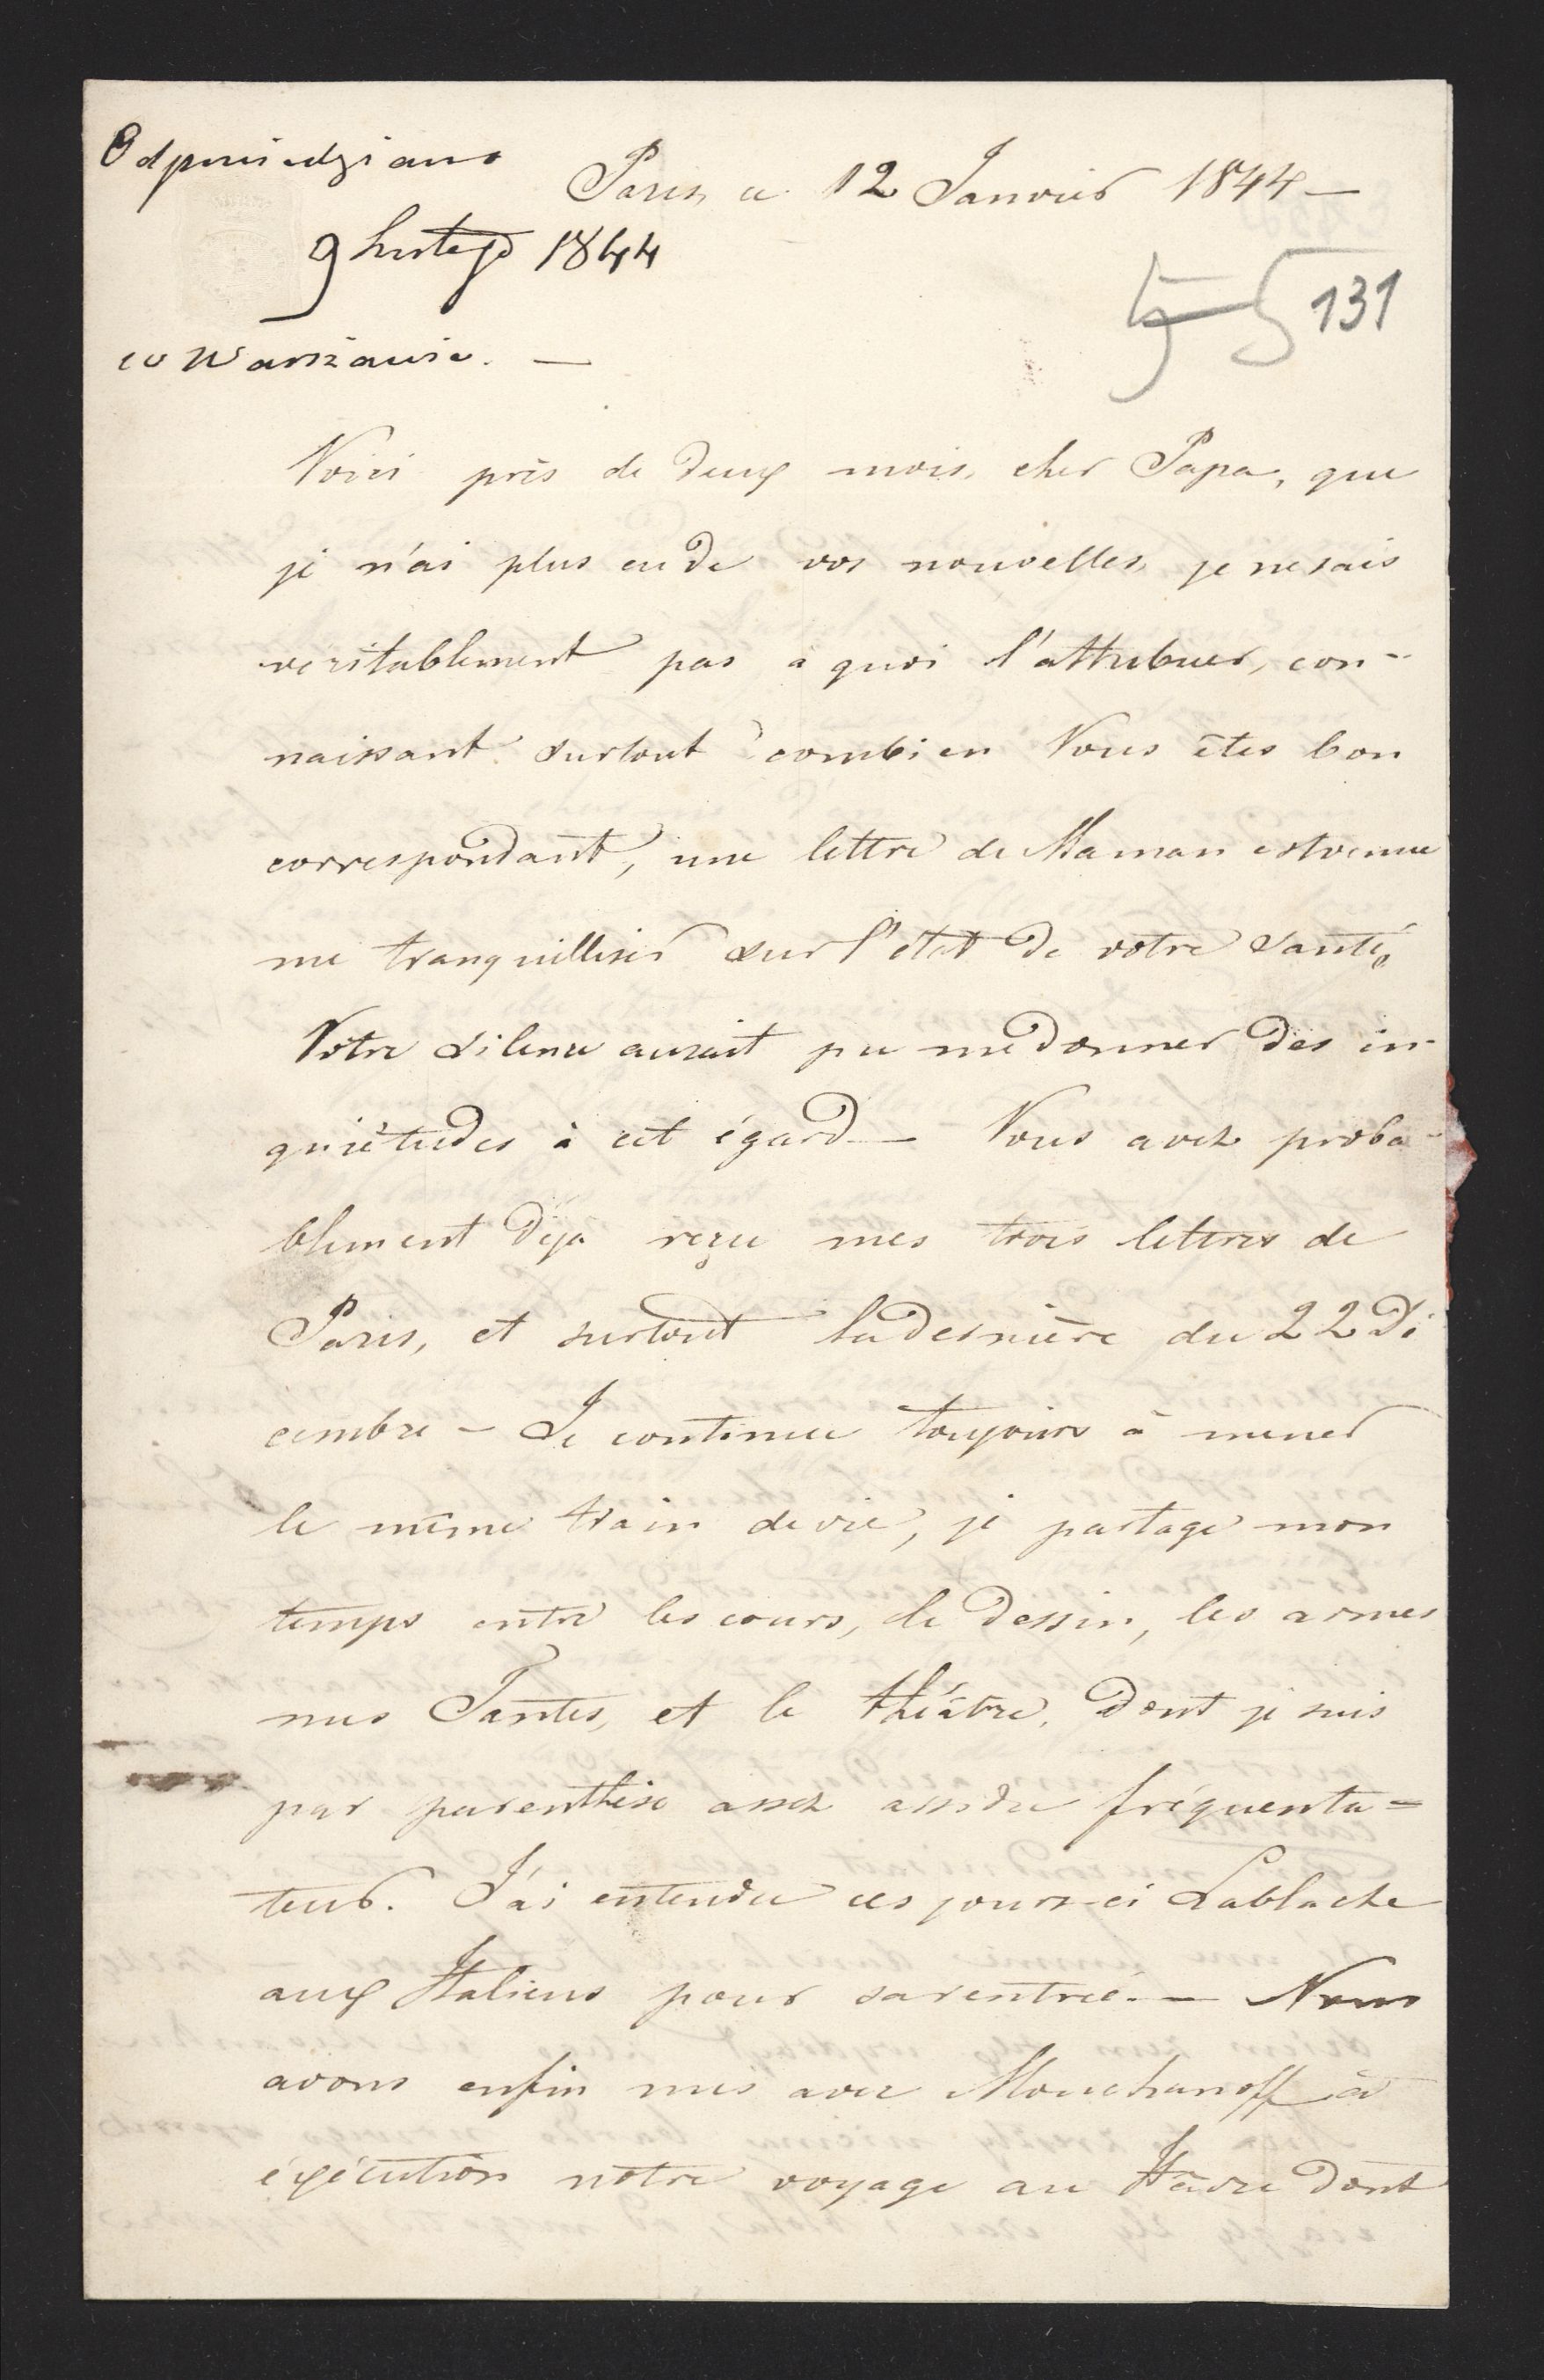 Odpowiedziano
Paris, ce 12 Janvier 1844 —
9 Lutego 1844
131
w Warszawie. —
Voici près de deux mois, cher Papa, que
je n'ai plus eu de vos nouvelles, je ne sais
veritablement pas à quoi l'attribuer, con-
naissant surtout combien Vous êtes bon
correspondant, une lettre de Maman est venue
me tranquilliser sur l'état de votre santé,
Votre silence aurait pu me donner des in-
quiétudes à cet égard — Vous avez proba-
blement déjà reçu mes trois lettres de
Paris, et surtout la dernière du 22 Dé
cembre — Je continue toujours à mener
le même train de vie, je partage mon
temps entre les cours, le dessin, les armes
mes Tantes, et le théâtre, dont je suis
par parenthèse assez assidu fréquenta=
teur. J'ai entendu ces jours-ci Lablache
aux Italiens pour sa rentrée. — Nous
avons enfin mis avec Mouchanoff à
éxécution notre voyage au Hâvre dont